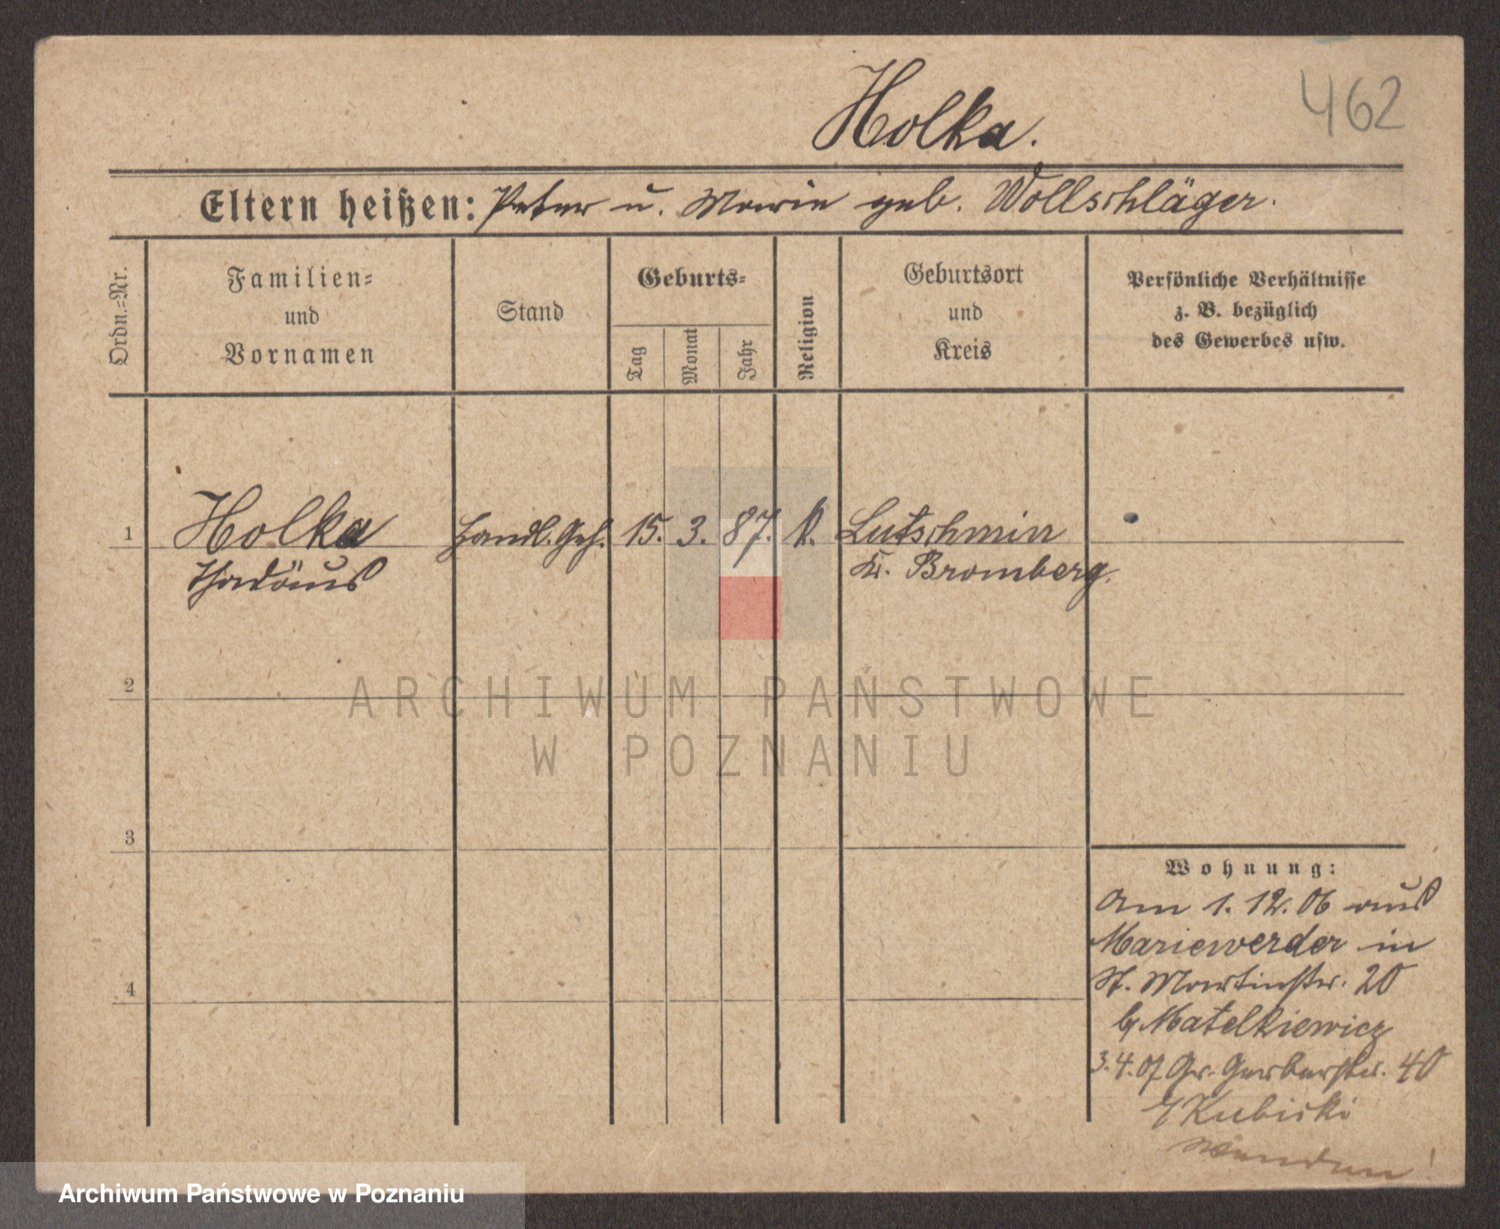 462
Holka.
Eltern heißen: Peter u. Marie geb. Wollschläger.
Ordn.-Nr.
Familien-
und
Vornamen
Stand
Geburts-
Tag
Monat
Jahr
Religion
Geburtsort
und
Kreis
Persönliche Verhältnisse
z. B. bezüglich
des Gewerbes usw.
1 Holka Handl. Geh. 15. 3. 87. k. Lutschmin
Thadäus Kr. Bromberg.
2
3
4
Wohnung:
Am 1. 12. 06 aus
Marienwerder in
St. Martinstr. 20
b/ Matelkiewicz
3.4.07 Gr. Gerberstr. 40
Kubicki
ARCHIWUM PAŃSTWOWE
W POZNANIU
Archiwum Państwowe w Poznaniu